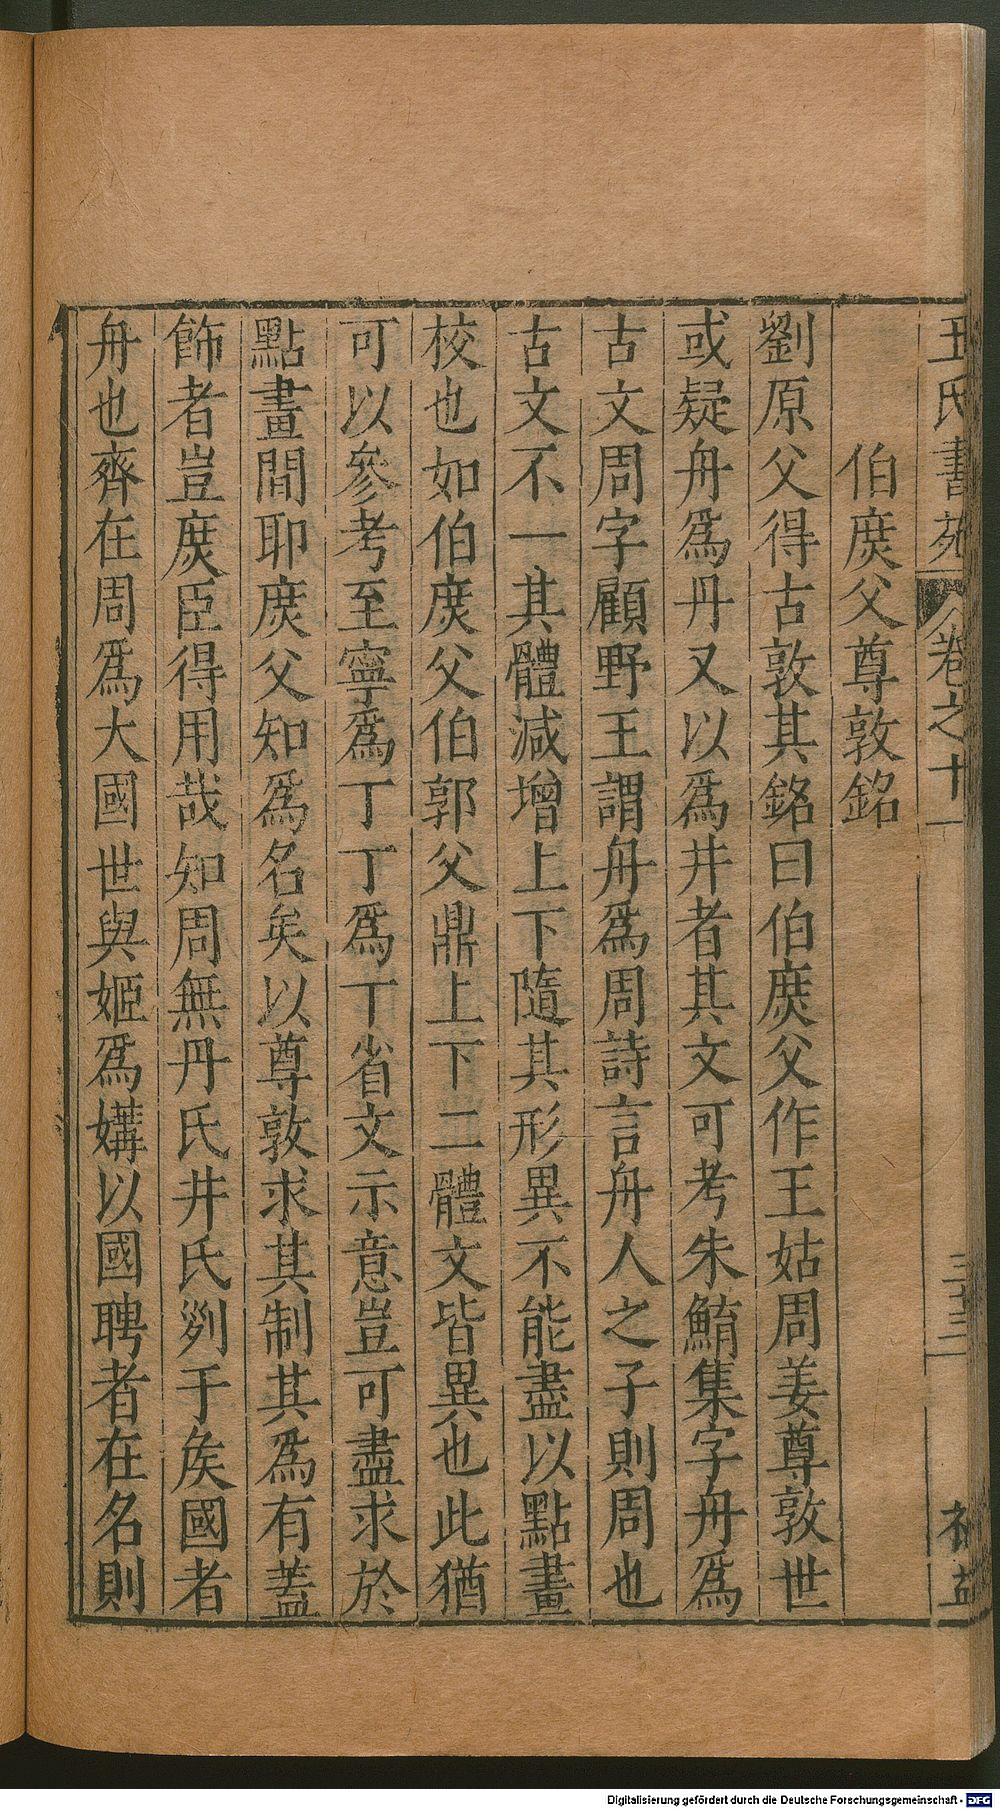 王氏書苑 卷之十一
伯庻父尊敦銘
劉原父得古敦其銘曰伯庻父作王姑周姜尊敦世
或疑舟爲丹又以爲井者其文可考朱鮪集字舟爲
古文周字顧野王謂舟爲周詩言舟人之子則周也
古文不一其體減增上下隨其形異不能盡以點畫
校也如伯庻父伯郭父鼎上下二體文皆異也此猶
可以參考至寧爲丁丁爲丅省文示意豈可盡求於
點畫間耶庻父知爲名矣以尊敦求其制其爲有蓋
飾者豈庻臣得用哉知周無丹氏井氏列于矦國者
舟也齊在周爲大國世與姬爲媾以國聘者在名則
Digitalisierung gefördert durch die Deutsche Forschungsgemeinschaft - DFG